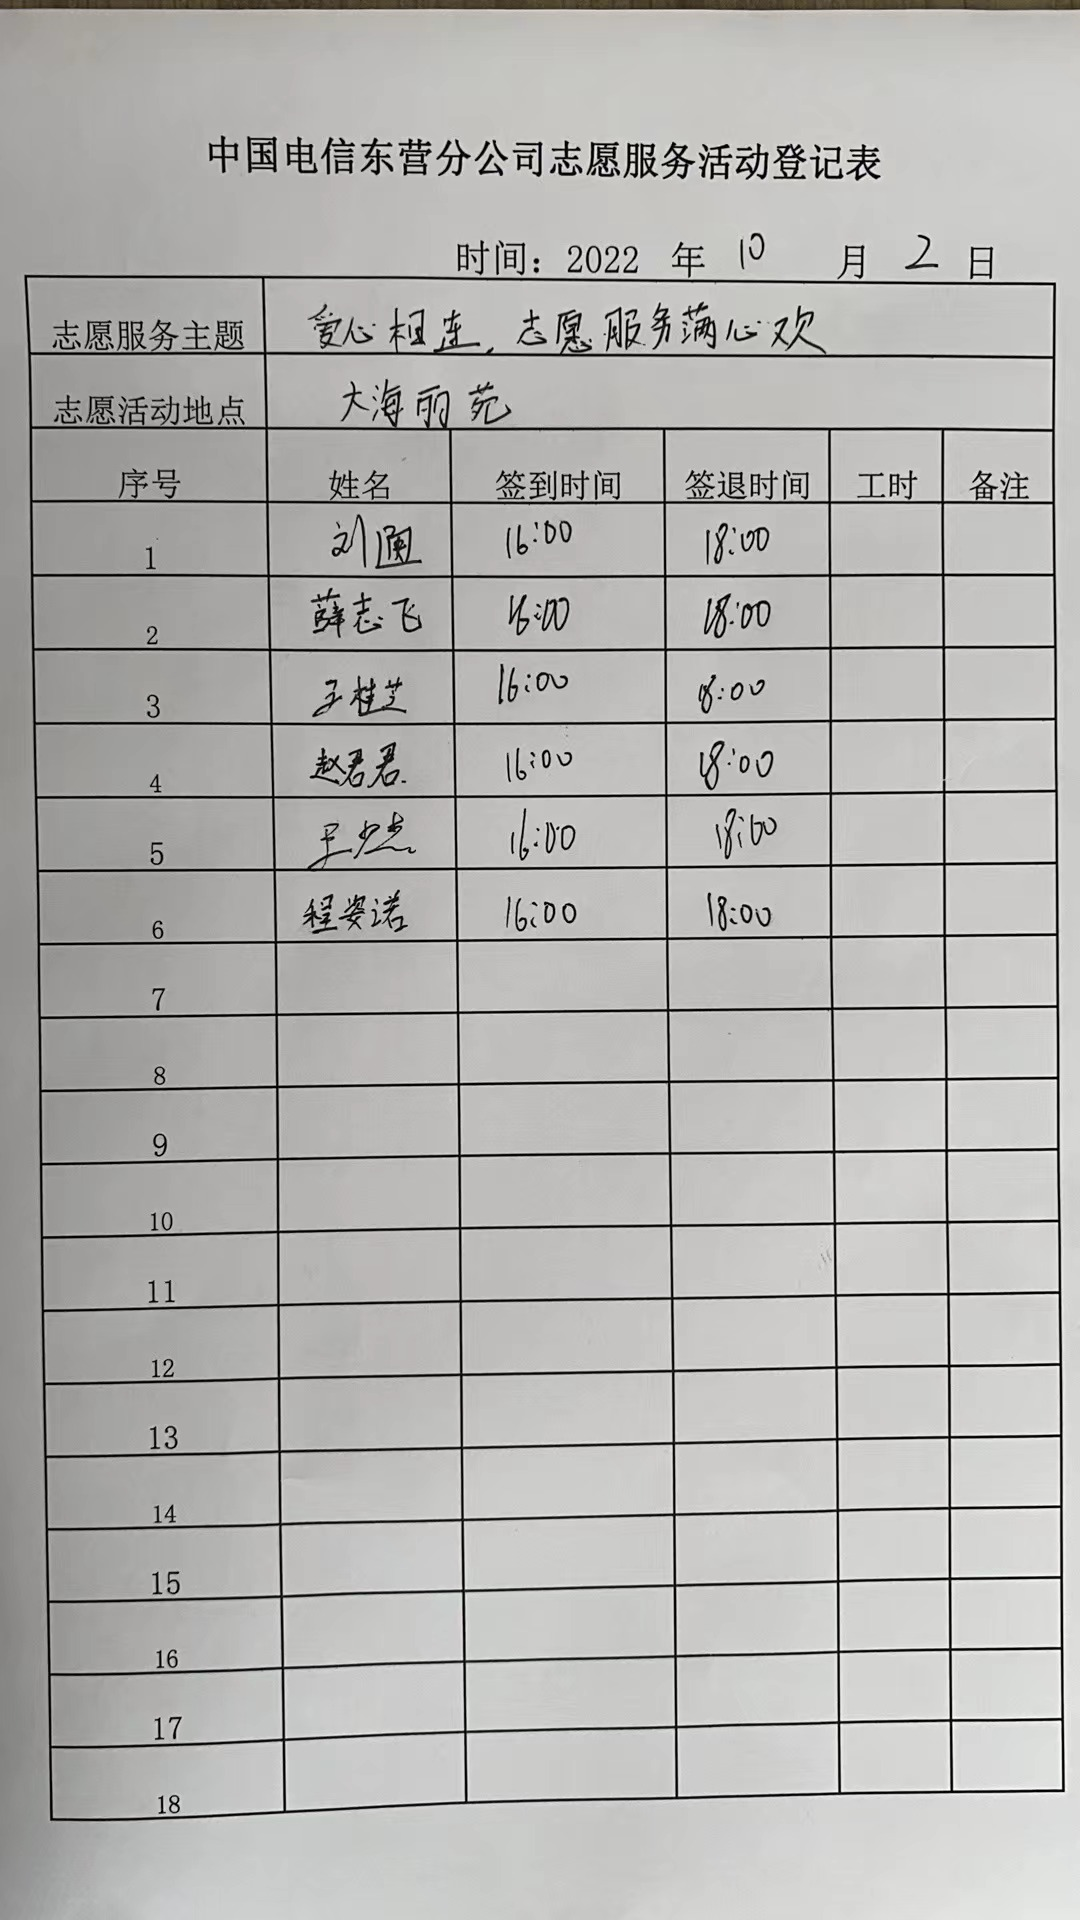 中国电信东营分公司志愿服务活动登记表
时间：2022 年 10 月 2 日
志愿服务主题 爱心相连，志愿服务满心欢
志愿活动地点 大海丽苑
序号 姓名 签到时间 签退时间 工时 备注
1 刘 16:00 18:00
2 薛志飞 16:00 18:00
3 王桂芝 16:00 18:00
4 赵君君 16:00 18:00
5 王少杰 16:00 18:00
6 程姿诺 16:00 18:00
7
8
9
10
11
12
13
14
15
16
17
18